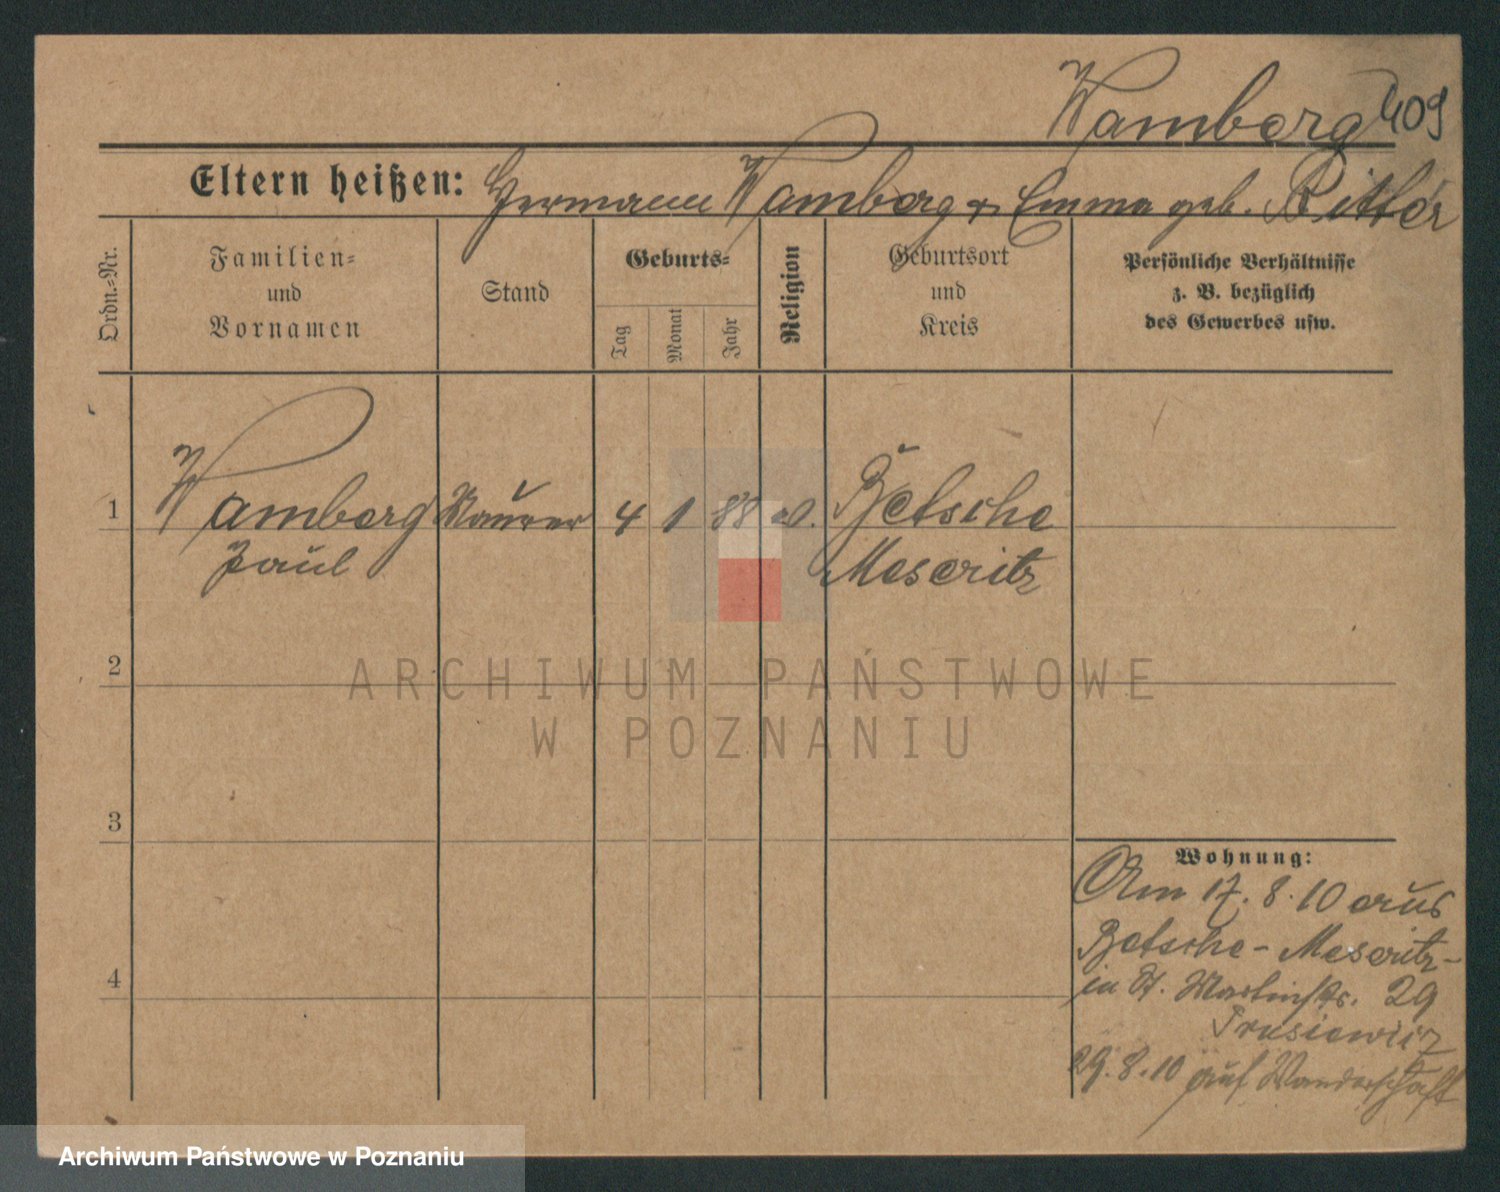 Wamberg 409
Eltern heißen: Hermann Wamberg & Emma geb. Ritter
Ordn.-Nr.
Familien-
und
Vornamen
Stand
Geburts-
Tag
Monat
Jahr
Religion
Geburtsort
und
Kreis
Persönliche Verhältnisse
z. B. bezüglich
des Gewerbes usw.
1 Wamberg Maurer 4 1 88 ev. Betsche
Paul Meseritz
2
ARCHIWUM PAŃSTWOWE
W POZNANIU
3
Wohnung:
Am 17. 8. 10 aus
Betsche - Meseritz -
in St. Martinstr. 29
Prusiewicz
4
29. 8. 10 auf Wanderschaft
Archiwum Państwowe w Poznaniu